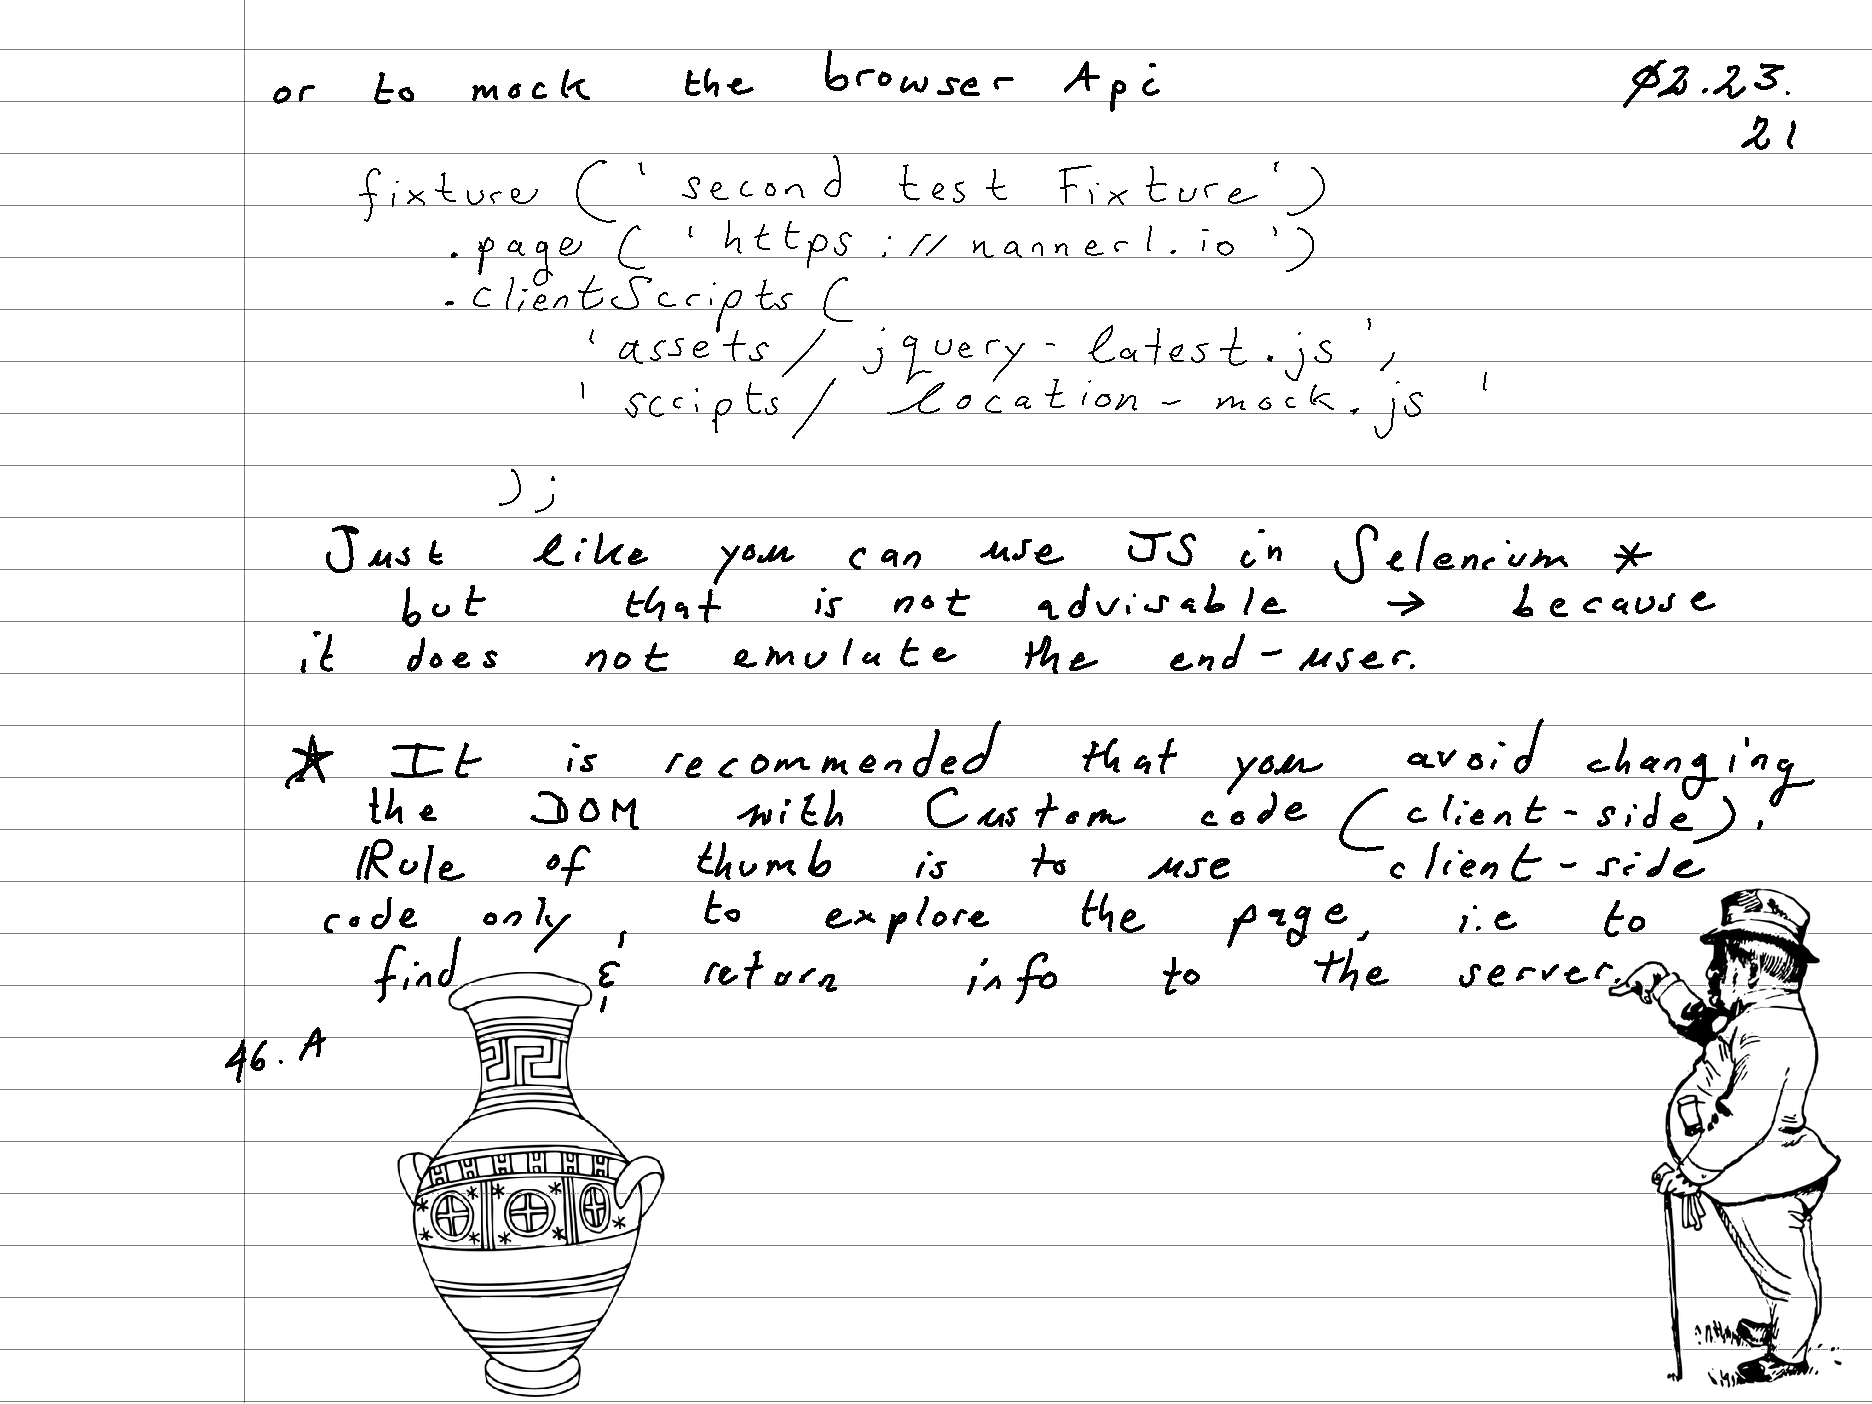 or to mock the browser Api
02.23.
21
fixture ('second test Fixture')
.page ('https://nannerl.io')
.clientScripts (
'assets/jquery-latest.js',
'scripts/location-mock.js'
);
Just like you can use JS in Selenium *
but that is not advisable → because
it does not emulate the end-user.
* It is recommended that you avoid changing
the DOM with Custom code (client-side).
Rule of thumb is to use client-side
code only, to explore the page, i.e to
find & return info to the server.
46.A